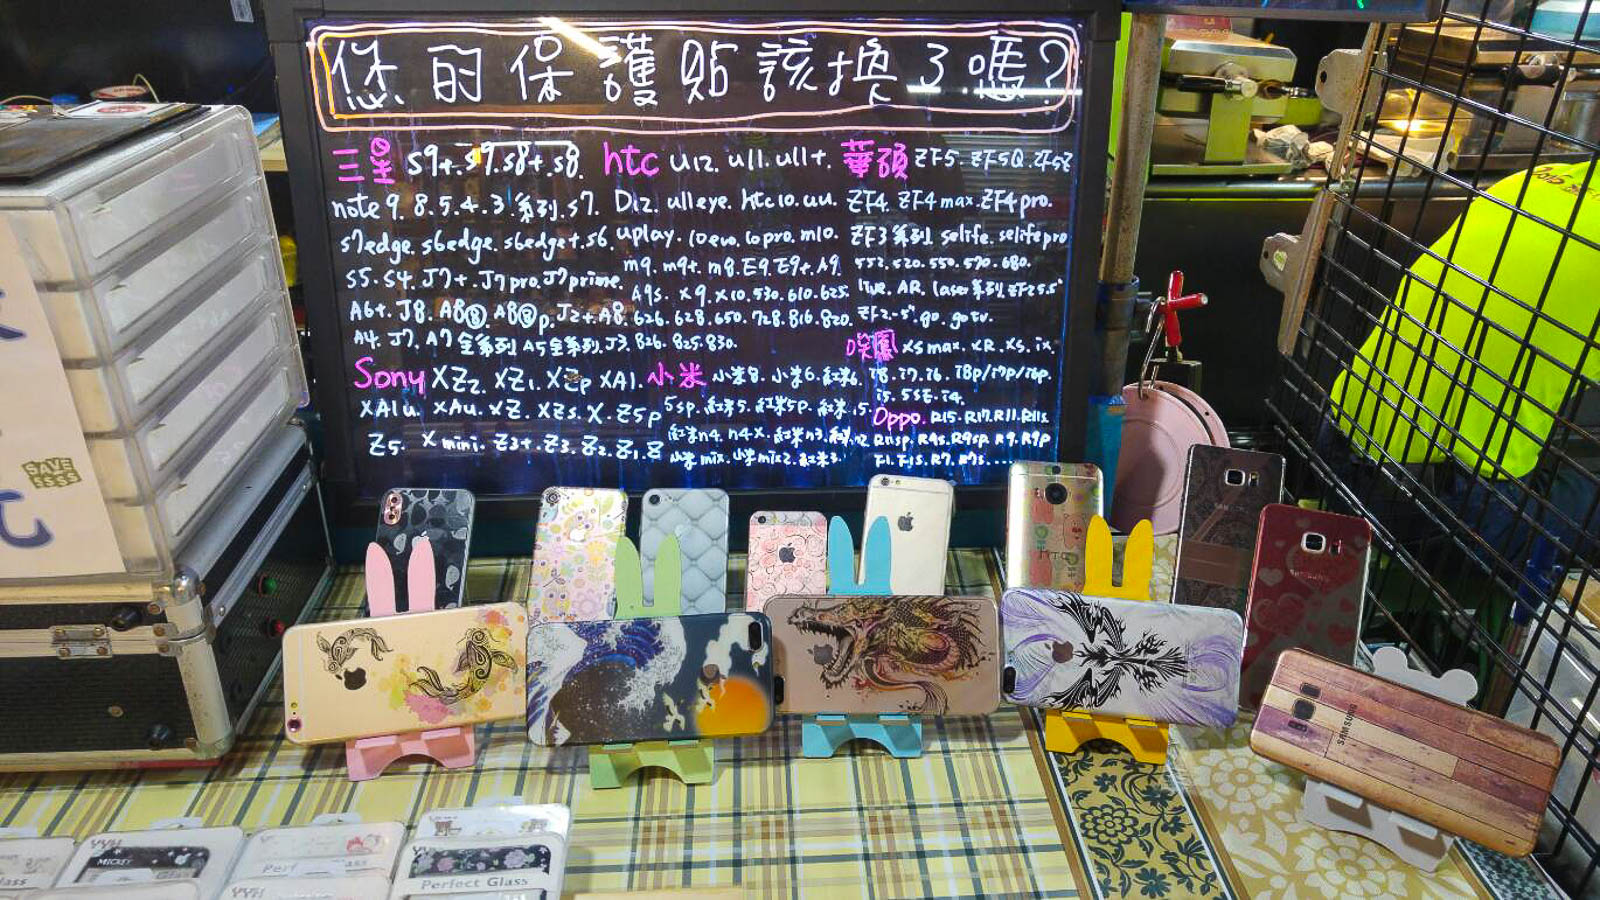 您的保護貼該換了嗎?
三星 S9+.S9.S8+.S8.
note 9.8.5.4.3.系列.S7.
S7edge.S6edge.S6edge+.S6.
S5.S4.J7+.J7pro.J7prime.
A6+.J8.A8⑧.A8⑧p.J2+.A8.
A4.J7.A7全系列.A5全系列.J3.
htc U12.U11.U11+.
D12.U11eye.htc10.UU.
uplay.10evo.10pro.M10.
M9.M9+.M8.E9.E9+.A9.
A9s.X9.X10.530.610.625.
626.628.650.728.816.820.
826.825.830.
華碩 ZF5.ZF5Q.ZF5Z
ZF4.ZF4max.ZF4pro.
ZF3系列.selfie.selfiepro
552.520.550.570.680.
live.AR.laser系列.ZF25.5"
ZF2-5".go.gotv.
Sony XZ2.XZ1.XZp XA1.
XA1u.XAu.XZ.XZs.X.Z5p
Z5.X mini.Z3+.Z3.Z2.Z1.Z
小米 小米8.小米6.紅米6.
5sp.紅米5.紅米5p.紅米
紅米n4.n4x.紅米n3.
小米mix.小米mix2.紅米3.
哀鳳 XSmax.XR.XS.ix.
i8.i7.i6.i8p/i7p/i6p.
i5.5SE.i4.
Oppo.R15.R17.R11.R11s.
R11sp.R9s.R9sp.R9.R9p
F1.F1s.R7.R7s......
SAVE
$$$$
元
SAMSUNG
SAMSUNG
YYH
MICKEY
Perfect Glass
YYH
Perfect Glass